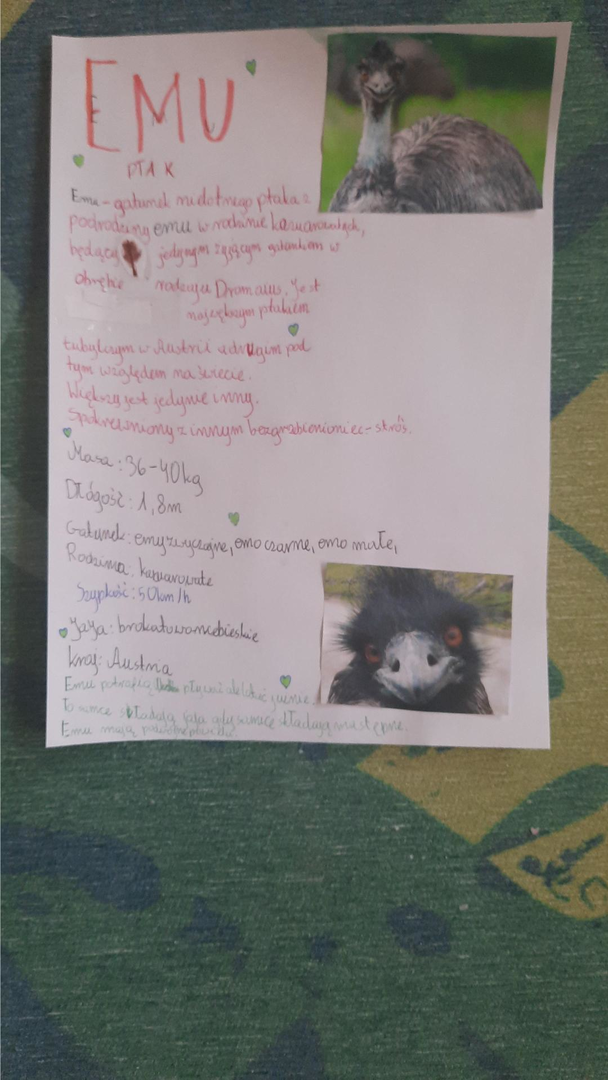 EMU
PTAK
Emu - gatunek nielotnego ptaka z
podrodziny emu w rodzinie kazuarowatych,
będący jedynym żyjącym gatunkiem w
obrębie rodzaju Dromaius. Jest
największym ptakiem
tubylczym w Austrii a drugim pod
tym względem na świecie.
Większy jest jedynie inny.
Spokrewniony z innym bezgrzebieniowiec - struś.
Masa: 36-40kg
Długość: 1,8m
Gatunek: emu zwyczajne, emo czarne, emo małe,
Rodzina: kazuarowate
Szypkość: 50km/h
Jaja: brokatowoniebieskie
kraj: Austria
Emu potrafią pływać ale latać nie
To samce składają jaja gdy samice składają następne.
Emu mają